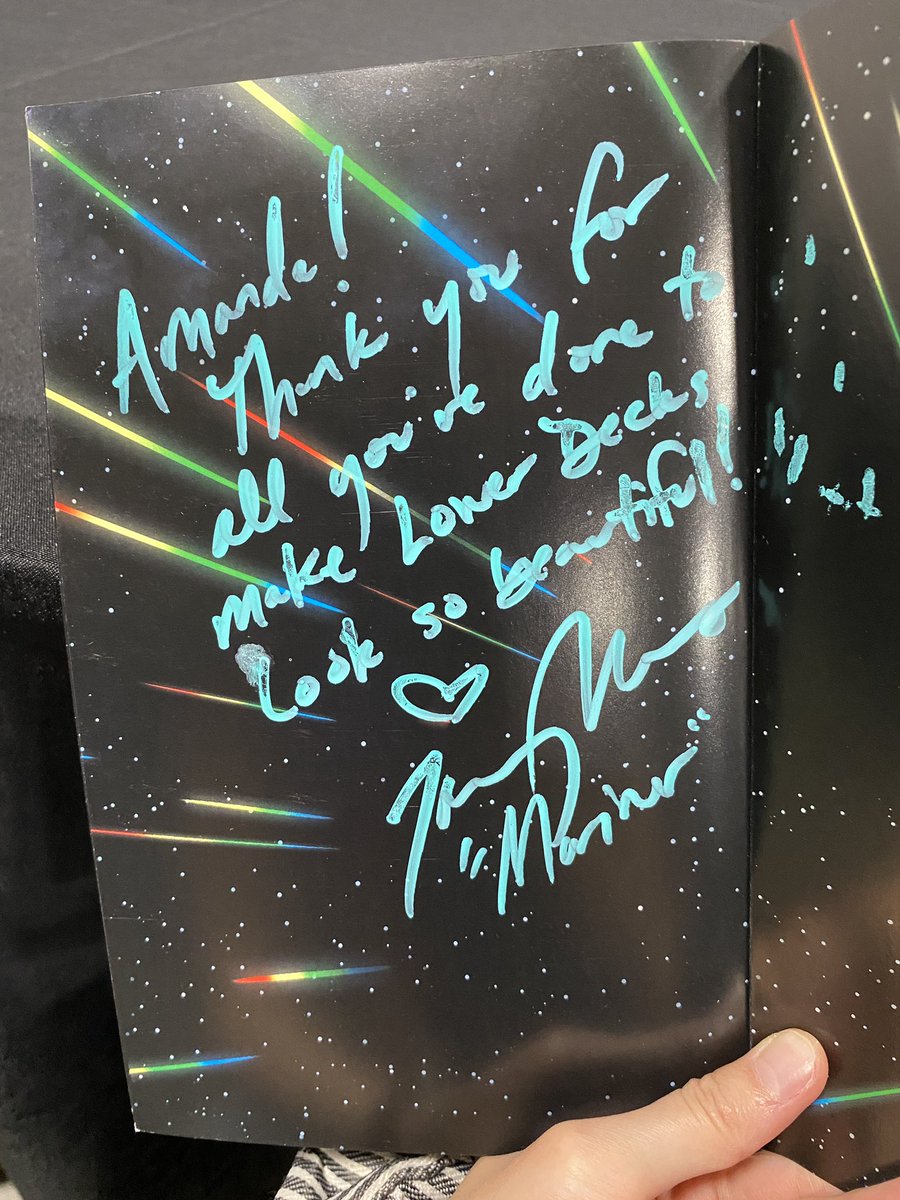 Amanda!
Thank you for
all you've done to
make Lower Decks
Look so beautiful!
"Mariner"